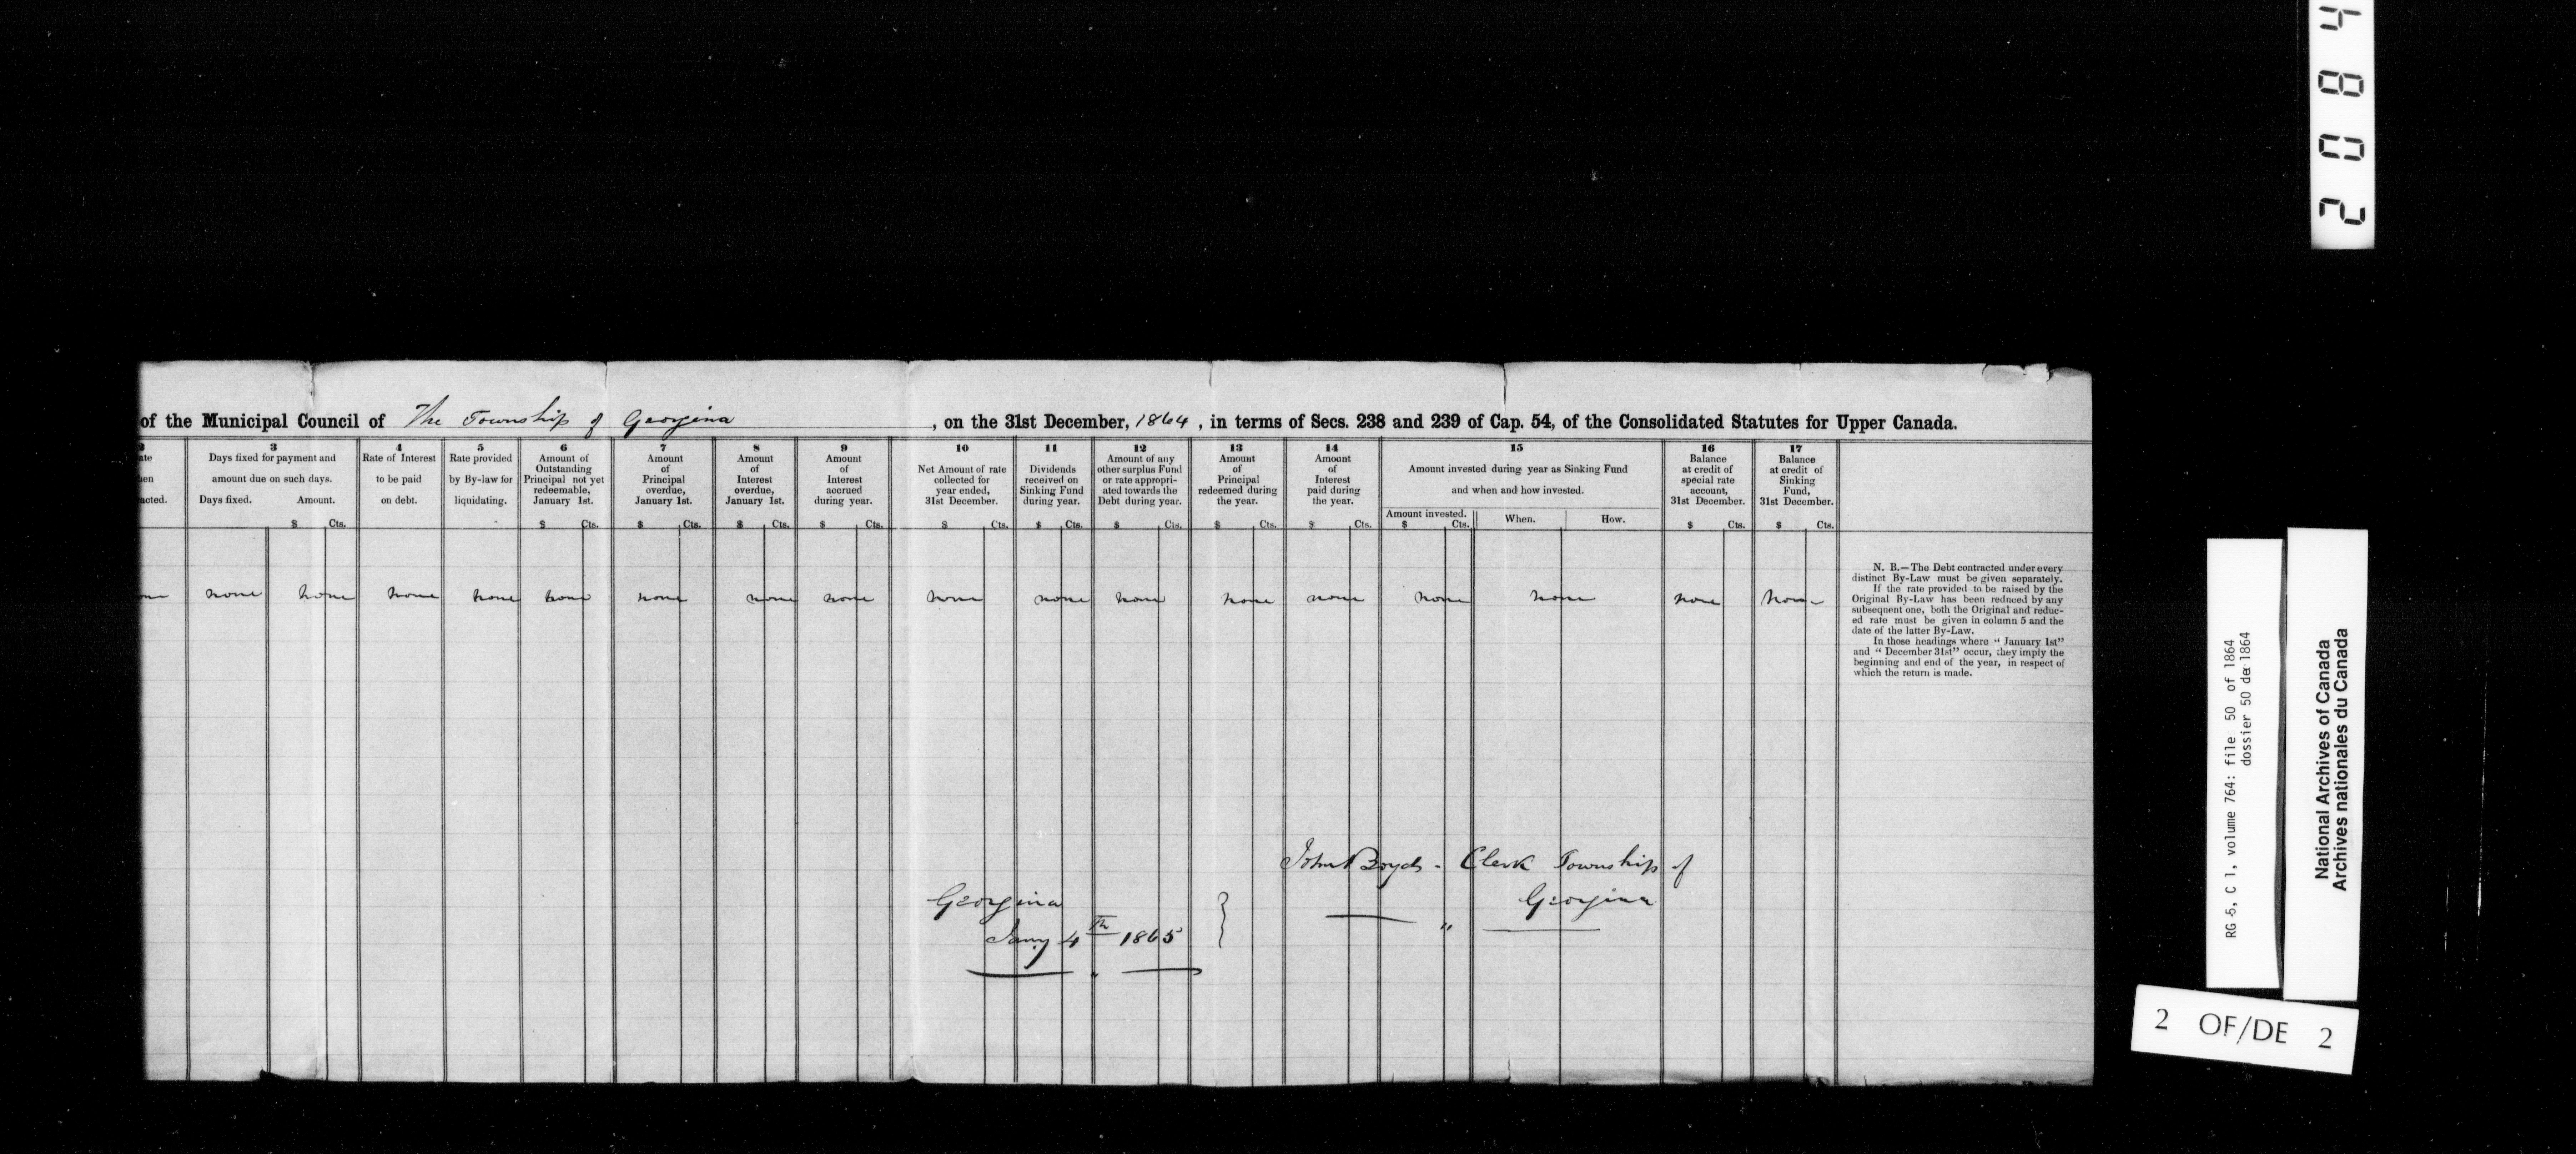 of the Municipal Council of The Township of Georgina , on the 31st December, 1864 , in terms of Secs. 238 and 239 of Cap. 54, of the Consolidated Statutes for Upper Canada.
2
ate
en
acted.
3
Days fixed for payment and
amount due on such days.
Days fixed. Amount.
$ Cts.
4
Rate of Interest
to be paid
on debt.
5
Rate provided
by By-law for
liquidating.
6
Amount of
Outstanding
Principal not yet
redeemable,
January 1st.
$ Cts.
7
Amount
of
Principal
overdue,
January 1st.
$ Cts.
8
Amount
of
Interest
overdue,
January 1st.
$ Cts.
9
Amount
of
Interest
accrued
during year.
$ Cts.
10
Net Amount of rate
collected for
year ended,
31st December.
$ Cts.
11
Dividends
received on
Sinking Fund
during year.
$ Cts.
12
Amount of any
other surplus Fund
or rate appropri-
ated towards the
Debt during year.
$ Cts.
13
Amount
of
Principal
redeemed during
the year.
$ Cts.
14
Amount
of
Interest
paid during
the year.
$ Cts.
15
Amount invested during year as Sinking Fund
and when and how invested.
Amount invested. When. How.
$ Cts.
16
Balance
at credit of
special rate
account,
31st December.
$ Cts.
17
Balance
at credit of
Sinking
Fund,
31st December.
$ Cts.
ne none none none none none none none none none none none none none none none none none
N. B.—The Debt contracted under every
distinct By-Law must be given separately.
If the rate provided to be raised by the
Original By-Law has been reduced by any
subsequent one, both the Original and reduc-
ed rate must be given in column 5 and the
date of the latter By-Law.
In those headings where " January 1st"
and " December 31st" occur, they imply the
beginning and end of the year, in respect of
which the return is made.
John Boyd - Clerk Township of
Georgina
"
Georgina
Jany 4th 1865 }
"
2084
RG 5, C 1, volume 764: file 50 of 1864
dossier 50 de 1864
National Archives of Canada
Archives nationales du Canada
2 OF/DE 2